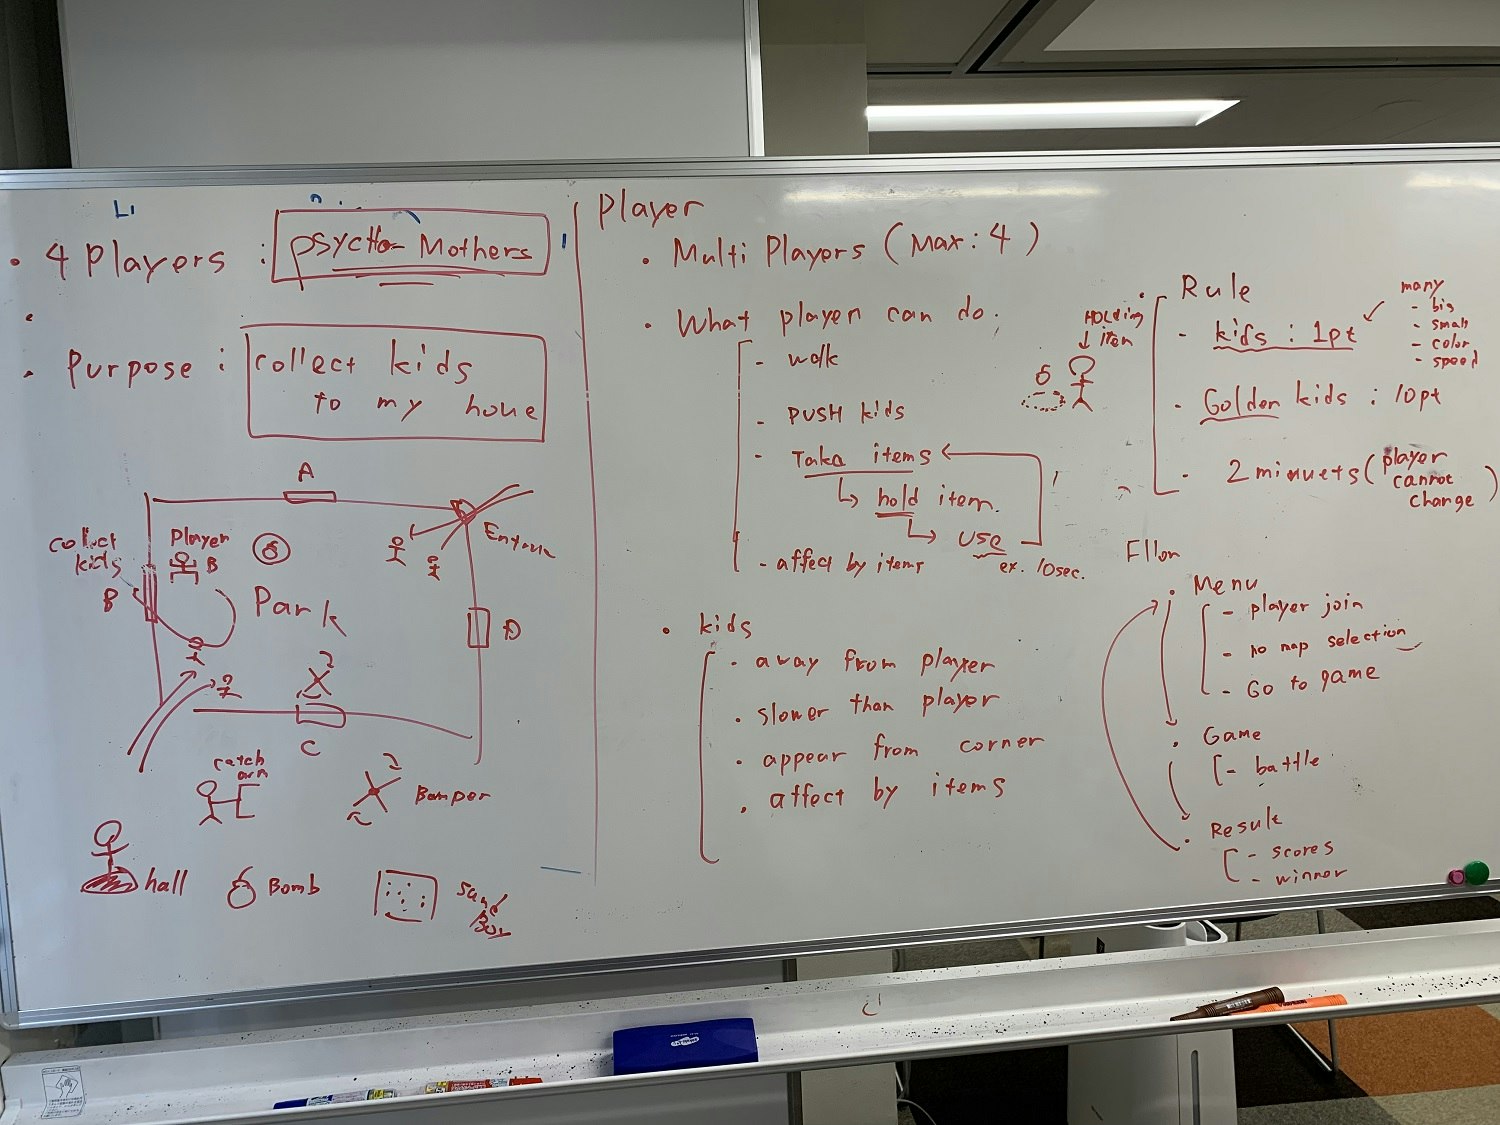 • 4 Players : psycho-Mothers
•
• Purpose : collect kids
to my house
A
Player
B
collect
kids
B
Park
Entrance
D
C
catch
arm
Bomper
hall
Bomb
Player
• Multi Players (Max: 4)
• What player can do.
- walk
- PUSH kids
- Take items
↳ hold item.
↳ use
ex. 10sec.
- affect by items
• kids
• away from player
• slower than player
• appear from corner
• affect by items
HOLding
↓ item
• Rule
- kids : 1pt
many
- big
- small
- color
- speed
- Golden kids : 10pt
- 2 minuets (player
cannot
change)
Fllow
• Menu
- player join
- no map selection
- Go to game
• Game
- battle
• Result
- scores
- winner